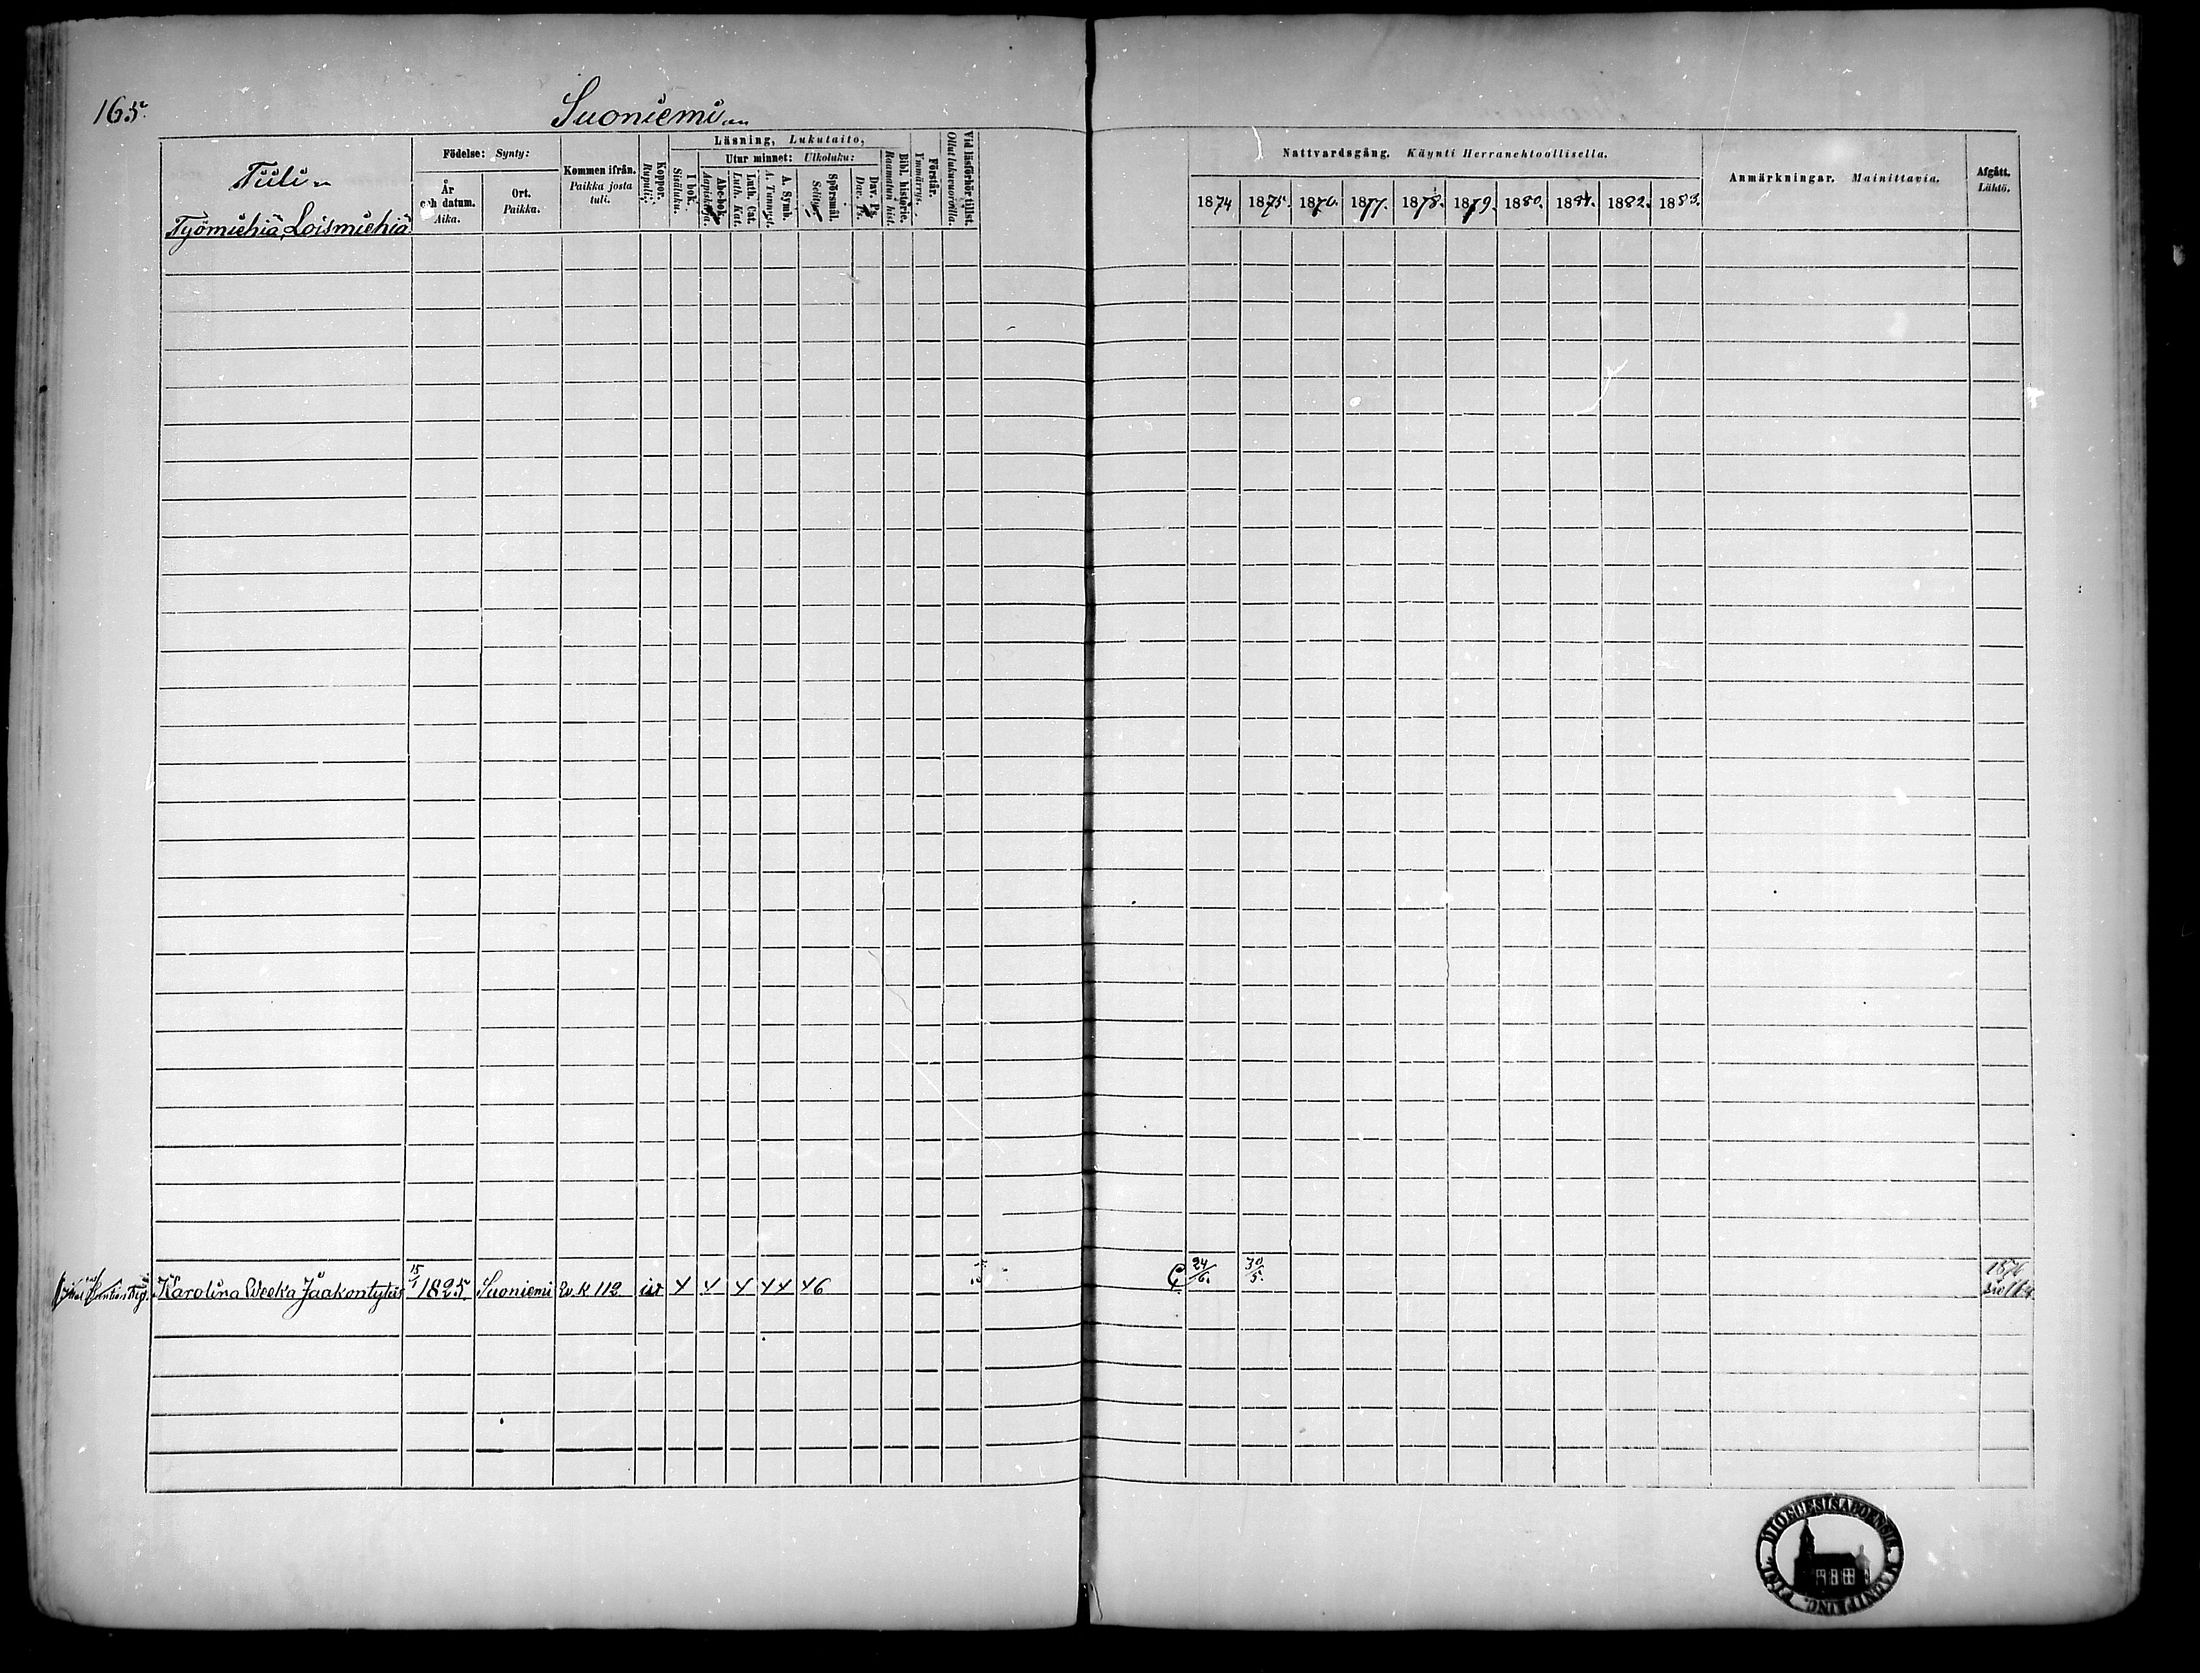 165.
Suoniemi
Tiili
Työmiehiä, Loismiehiä
Födelse: Synty:
År och datum. Aika.
Ort. Paikka.
Kommen ifrån. Paikka josta tuli.
Koppor. Rupuli.
Läsning, Lukutaito,
I bok. Sisäluku.
Utur minnet: Ulkoluku:
Abc-bok. Aapiskirja.
Luth. Cat. Luth. Kat.
A. Symb. A. Tunnust.
Spörsmål. Selitys.
Dav. Ps. Dav. Ps.
Bibl. historie. Raamatun hist.
Förstår. Ymmärrys.
Vid läsförhör tillst. Ollut lukuvuorolla.
Nattvardsgång. Käynti Herranehtoollisella.
1874 1875. 1876. 1877. 1878. 1879. 1880. 1881. 1882. 1883.
Anmärkningar. Mainittavia.
Afgått. Lähtö.
Karolina Jaakontytär 15/1 1825. Suoniemi K 112 4 4 4 44 46 24/6. 30/5. 1876